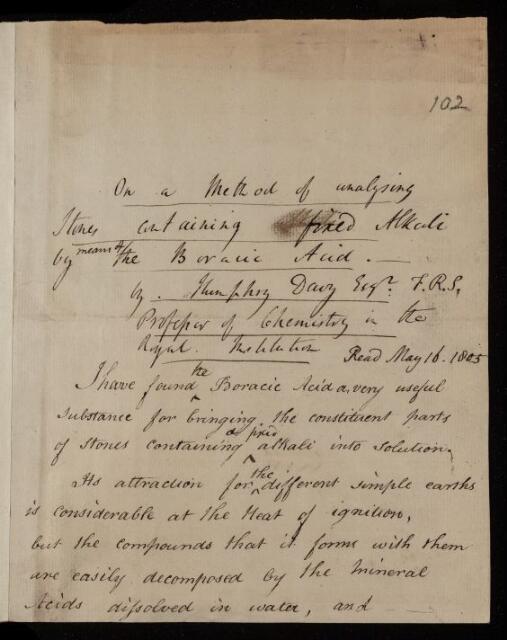 102
On a Method of analysing
Stones containing fixed Alkali
by means of the Boracic Acid. —
by. Humphry Davy Esqr. F.R.S.
Professor of Chemistry in the
Royal Institution Read May 16. 1805
I have found the Boracic Acid a very useful
substance for bringing the constituent parts
of stones containing a fixed alkali into solution.
Its attraction for the different simple earths
is considerable at the Heat of ignition,
but the compounds that it forms with them
are easily decomposed by the mineral
Acids dissolved in water, and